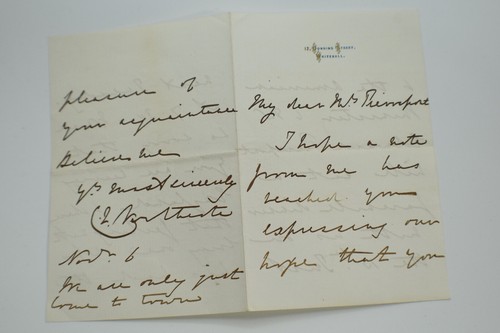 12, Downing Street,
Whitehall.
My dear Mrs
I hope a note
from me has
reached you
expressing our
hope that you
pleasure of
your acquaintance
Believe me
Yrs most sincerely
C. Northcote
Novr. 6
We are only just
come to town